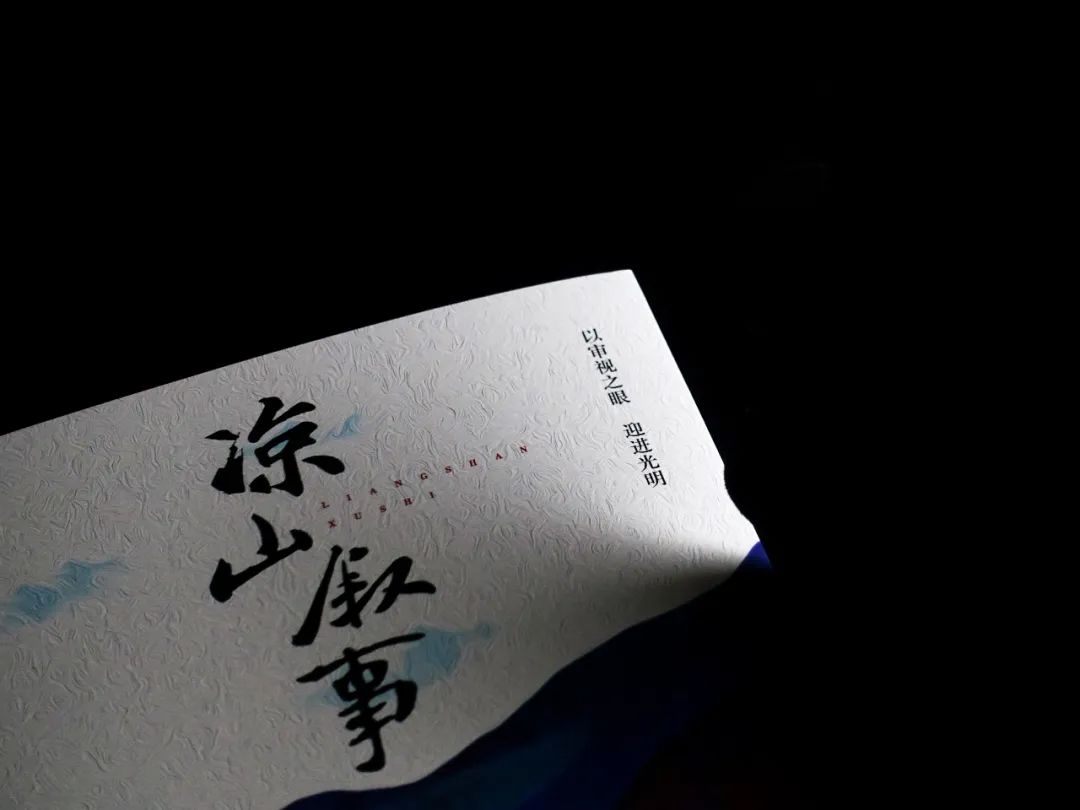 凉山
叙事
LIANGSHAN
XUSHI
以审视之眼 迎进光明